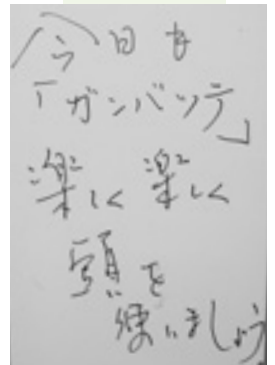 今日も
「ガンバッテ」
楽しく楽しく
頭を
使いましょう